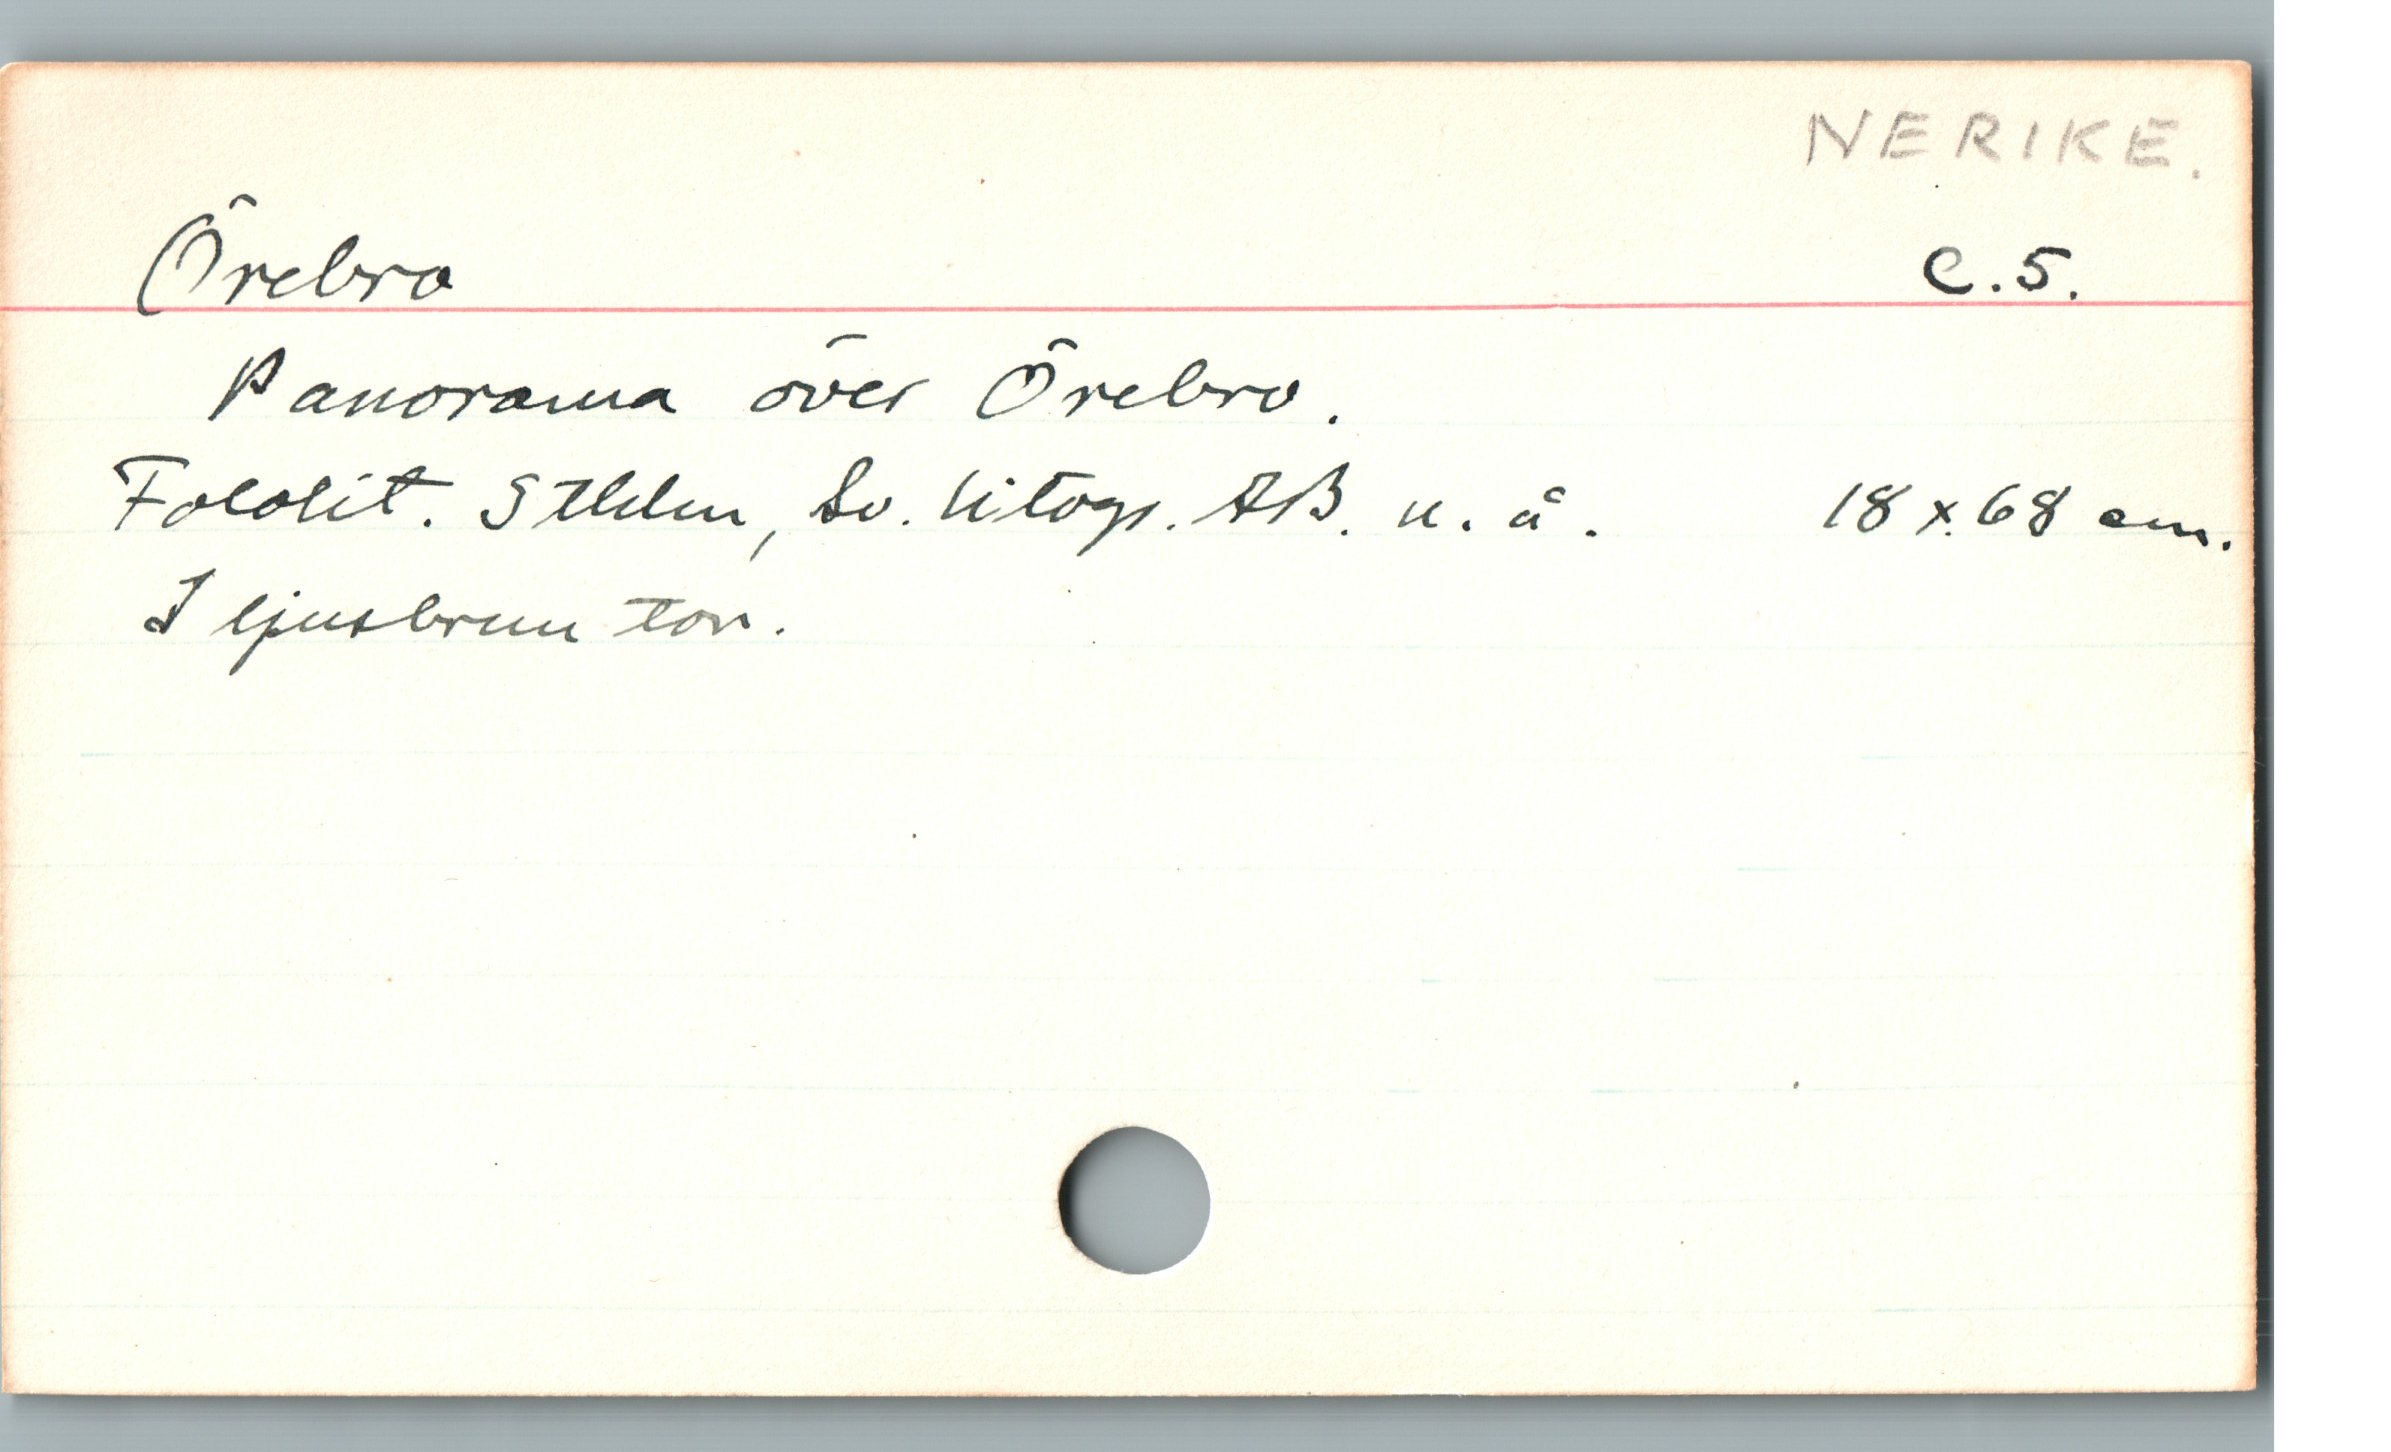 NERIKE.
Örebro C.5.
Panorama över Örebro.
Fotolit. Sthlm, Sv. Litogr. AB. u. å. 18 x 68 cm.
I ljusbrun ton.